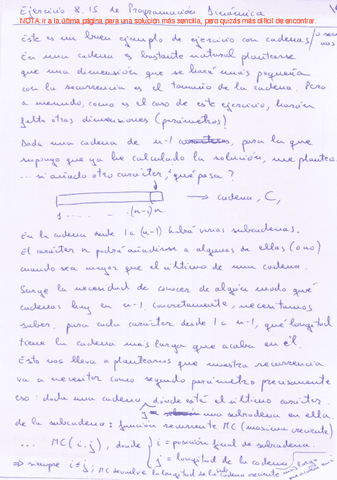 Ejercicio 8.15 de Programación Dinámica
NOTA: ir a la última página para una solución más sencilla, pero quizás más difícil de encontrar.
Este es un buen ejemplo de ejercicio con cadenas
En una cadena es bastante natural plantearse
que una dimensión que se hará más pequeña
con la recurrencia es el tamaño de la cadena. Pero
a menudo, como es el caso de este ejercicio, harán
falta otras dimensiones (parámetros)
Dada una cadena de n-1 para la que
supongo que ya he calculado la solución, me planteo
... si añado otro carácter, ¿qué pasa?
→ cadena, C,
1 ..... (n-1) n
En la cadena desde 1 a (n-1) habrá varias subcadenas.
El carácter n podrá añadirse a algunas de ellas (o no)
cuando sea mayor que el último de una cadena.
Surge la necesidad de conocer de algún modo qué
cadenas hay en n-1, concretamente, necesitamos
saber, para cada carácter desde 1 a n-1, qué longitud
tiene la cadena más larga que acaba en él.
Esto nos lleva a plantearnos que nuestra recurrencia
va a necesitar como segundo parámetro precisamente
eso: dada una cadena dónde está el último carácter
una subcadena en ella
de la subcadena: función recurrente MC (máxima creciente)
... MC(i,j), donde i = posición final de subcadena.
j = longitud de la cadena
⇒ siempre i≠j; MC devuelve la longitud de la creciente